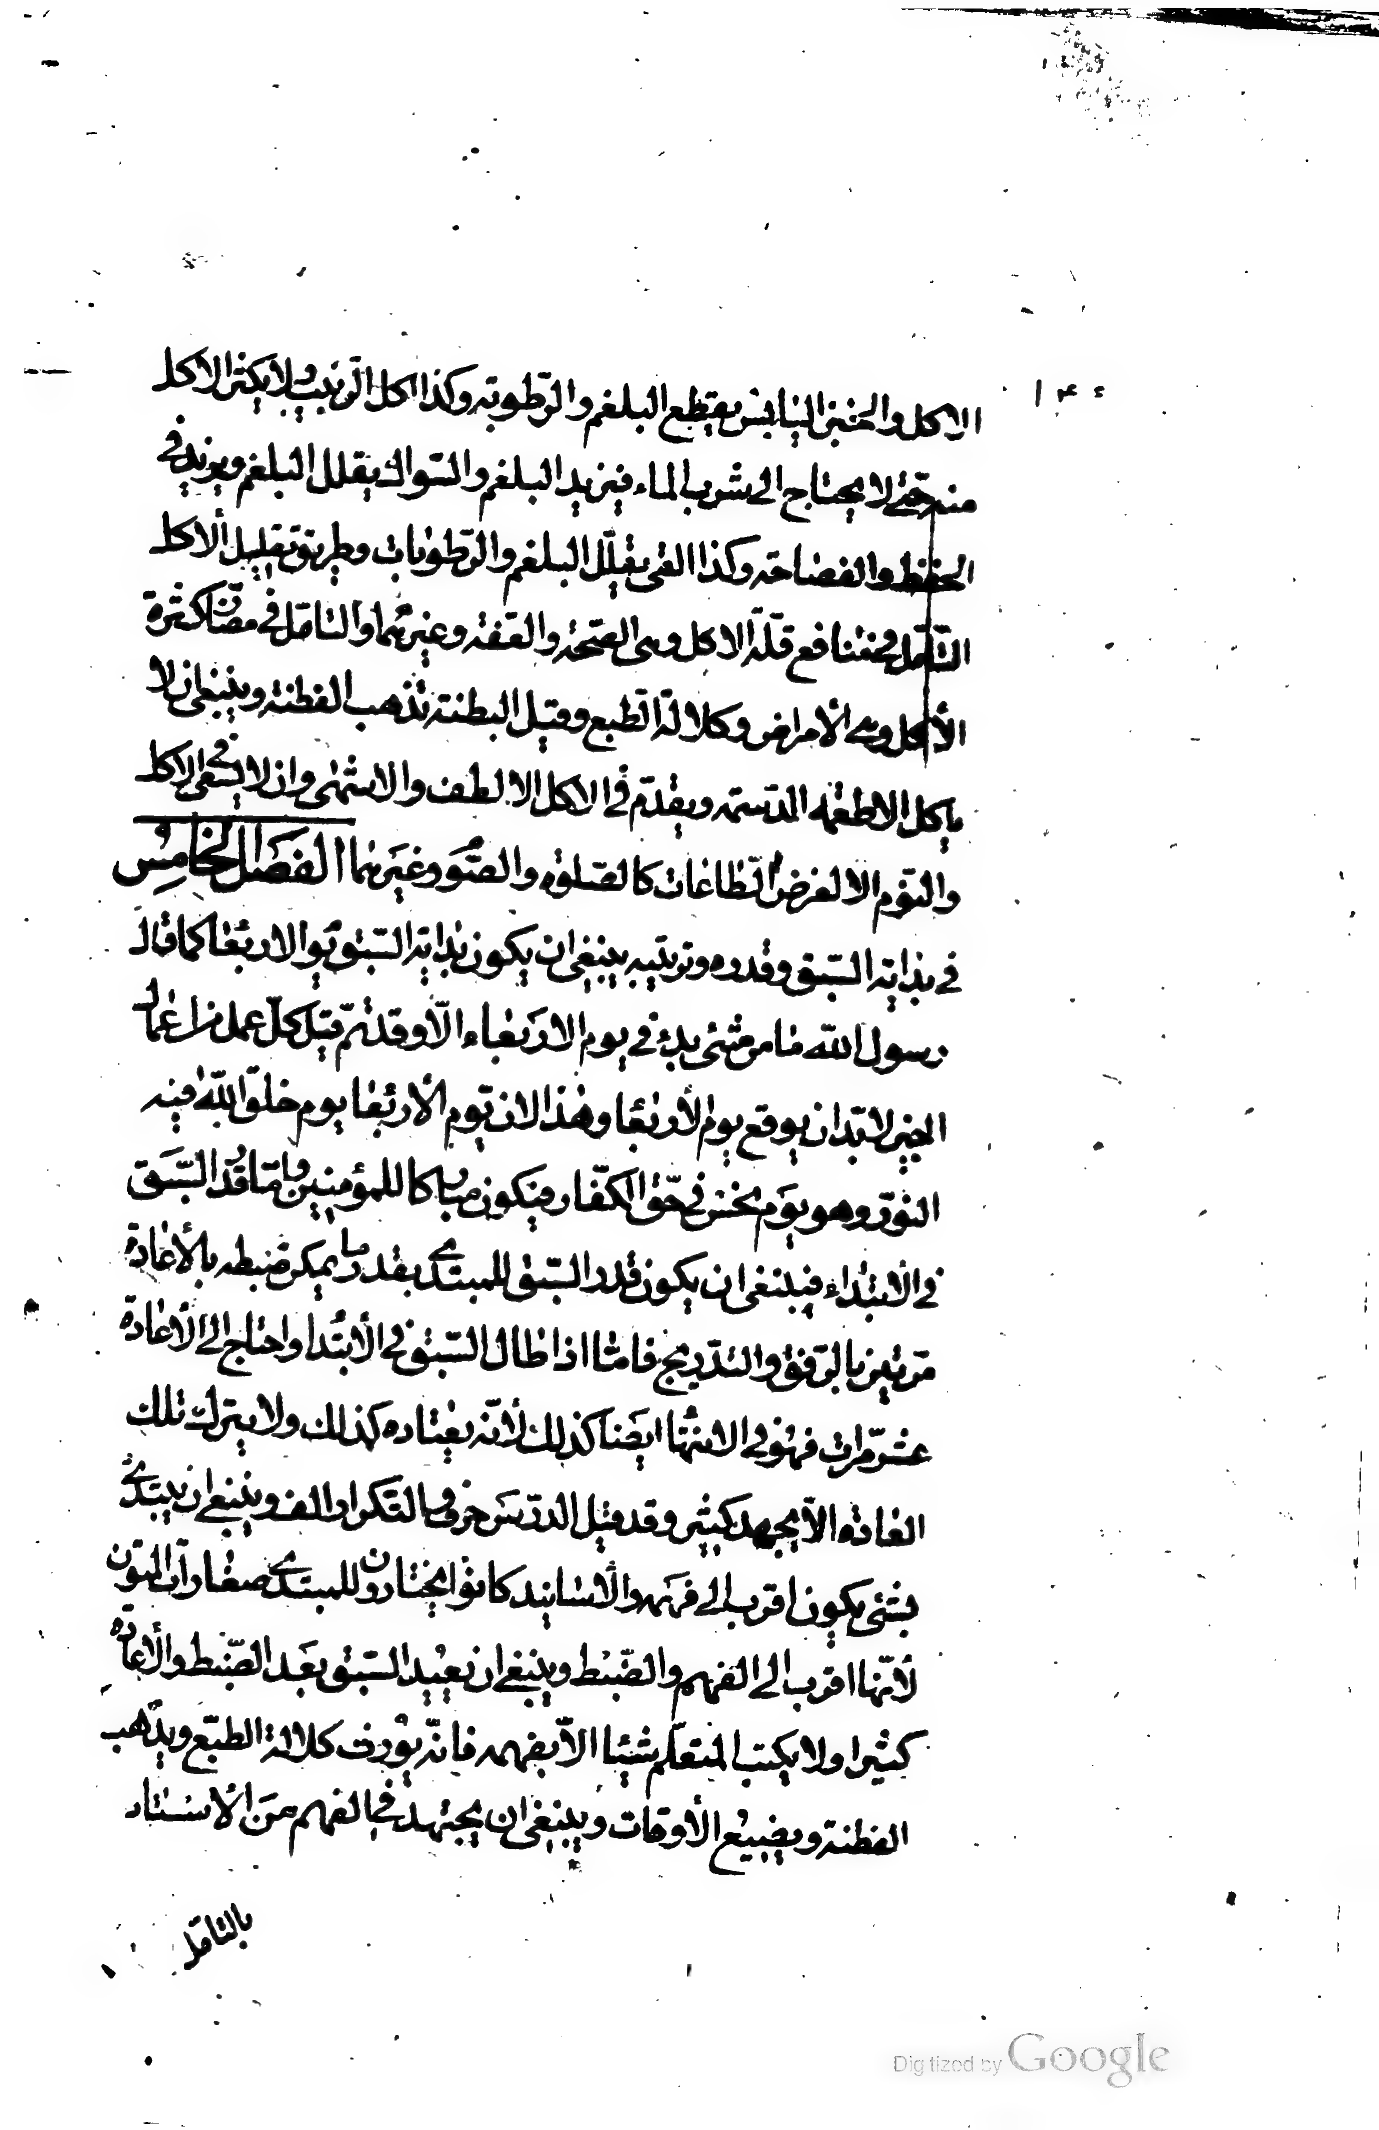 ١٤٤
الاكل والخبز اليابس يقطع البلغم والرّطوبة وكذا اكل الزبيب ولا يكثر الاكل
منه حتى لا يحتاج الى شرب الماء فيزيد البلغم والسّواك يقلل البلغم ويزيد في
الحفظ والفصاحة وكذا القى يقلّل البلغم والرّطوبات وطريق تقليل الاكل
التّأمّل في منافع قلّة الاكل وهى الصّحة والعّفة وغيرهما والتامّل في مضّان كثرة
الأكل وهى الأمراض وكلالة الطبع وقيل البطنة تذهب الفطنة وينبغى ان لا
ياكل الاطعمه الدّسمة ويقدّم في الاكل الالطف والاشهى وان لا يسعى في الاكل
والنّوم الا لغرض الطّاعات كالصّلوة والصّوم وغيرهما الفصل الخامس
في بداية السّبق وقدره وترتيبه ينبغى ان يكون بداية السّبق يوم الاربعا كما قال
رسول الله ما من شئ بدء في يوم الاربعاء الّا وقد تمّ قيل كلّ عمل من اعمال
الخير لا بدّ ان يوقع يوم الأربعا وهذا لان يوم الأربعا يوم خلق الله فيه
النّور وهو يوم نحس في حقّ الكفّار فيكون مباركا للمؤمنين وامّا قدر السّبق
في الابتداء فينبغى ان يكون قدر السّبق للمبتدى بقدر ما يمكن ضبطه بالأعادة
مرّتين بالرّفق والتدّريج فامّا اذا طال السّبق في الأبتدا واحتاج الى الأعادة
عشر مّرات فهو في الانتها ايضا كذلك لأنّه يعتاده كذلك ولا يترك تلك
العادة الاّ بجهد كثير وقد قيل الدرّس حرف والتّكرار الف وينبغى ان يبتدى
بشئ يكون اقرب الى فهمه والأساتيد كانوا يختارون للمبتدى صغارات المتون
لأنّها اقرب الى الفهم والضّبط وينبغى ان يعيد السّبق بعد الضّبط والأعادة
كثيرا ولا يكتب المتعلّم شيئا الاّ بفهمه فانّه يورث كلالة الطبّع ويذّهب
الفطنة ويضييع الأوقات وينبغى ان يجتهد في الفهم من الأستاد
بالتامّل
Digitized by Google